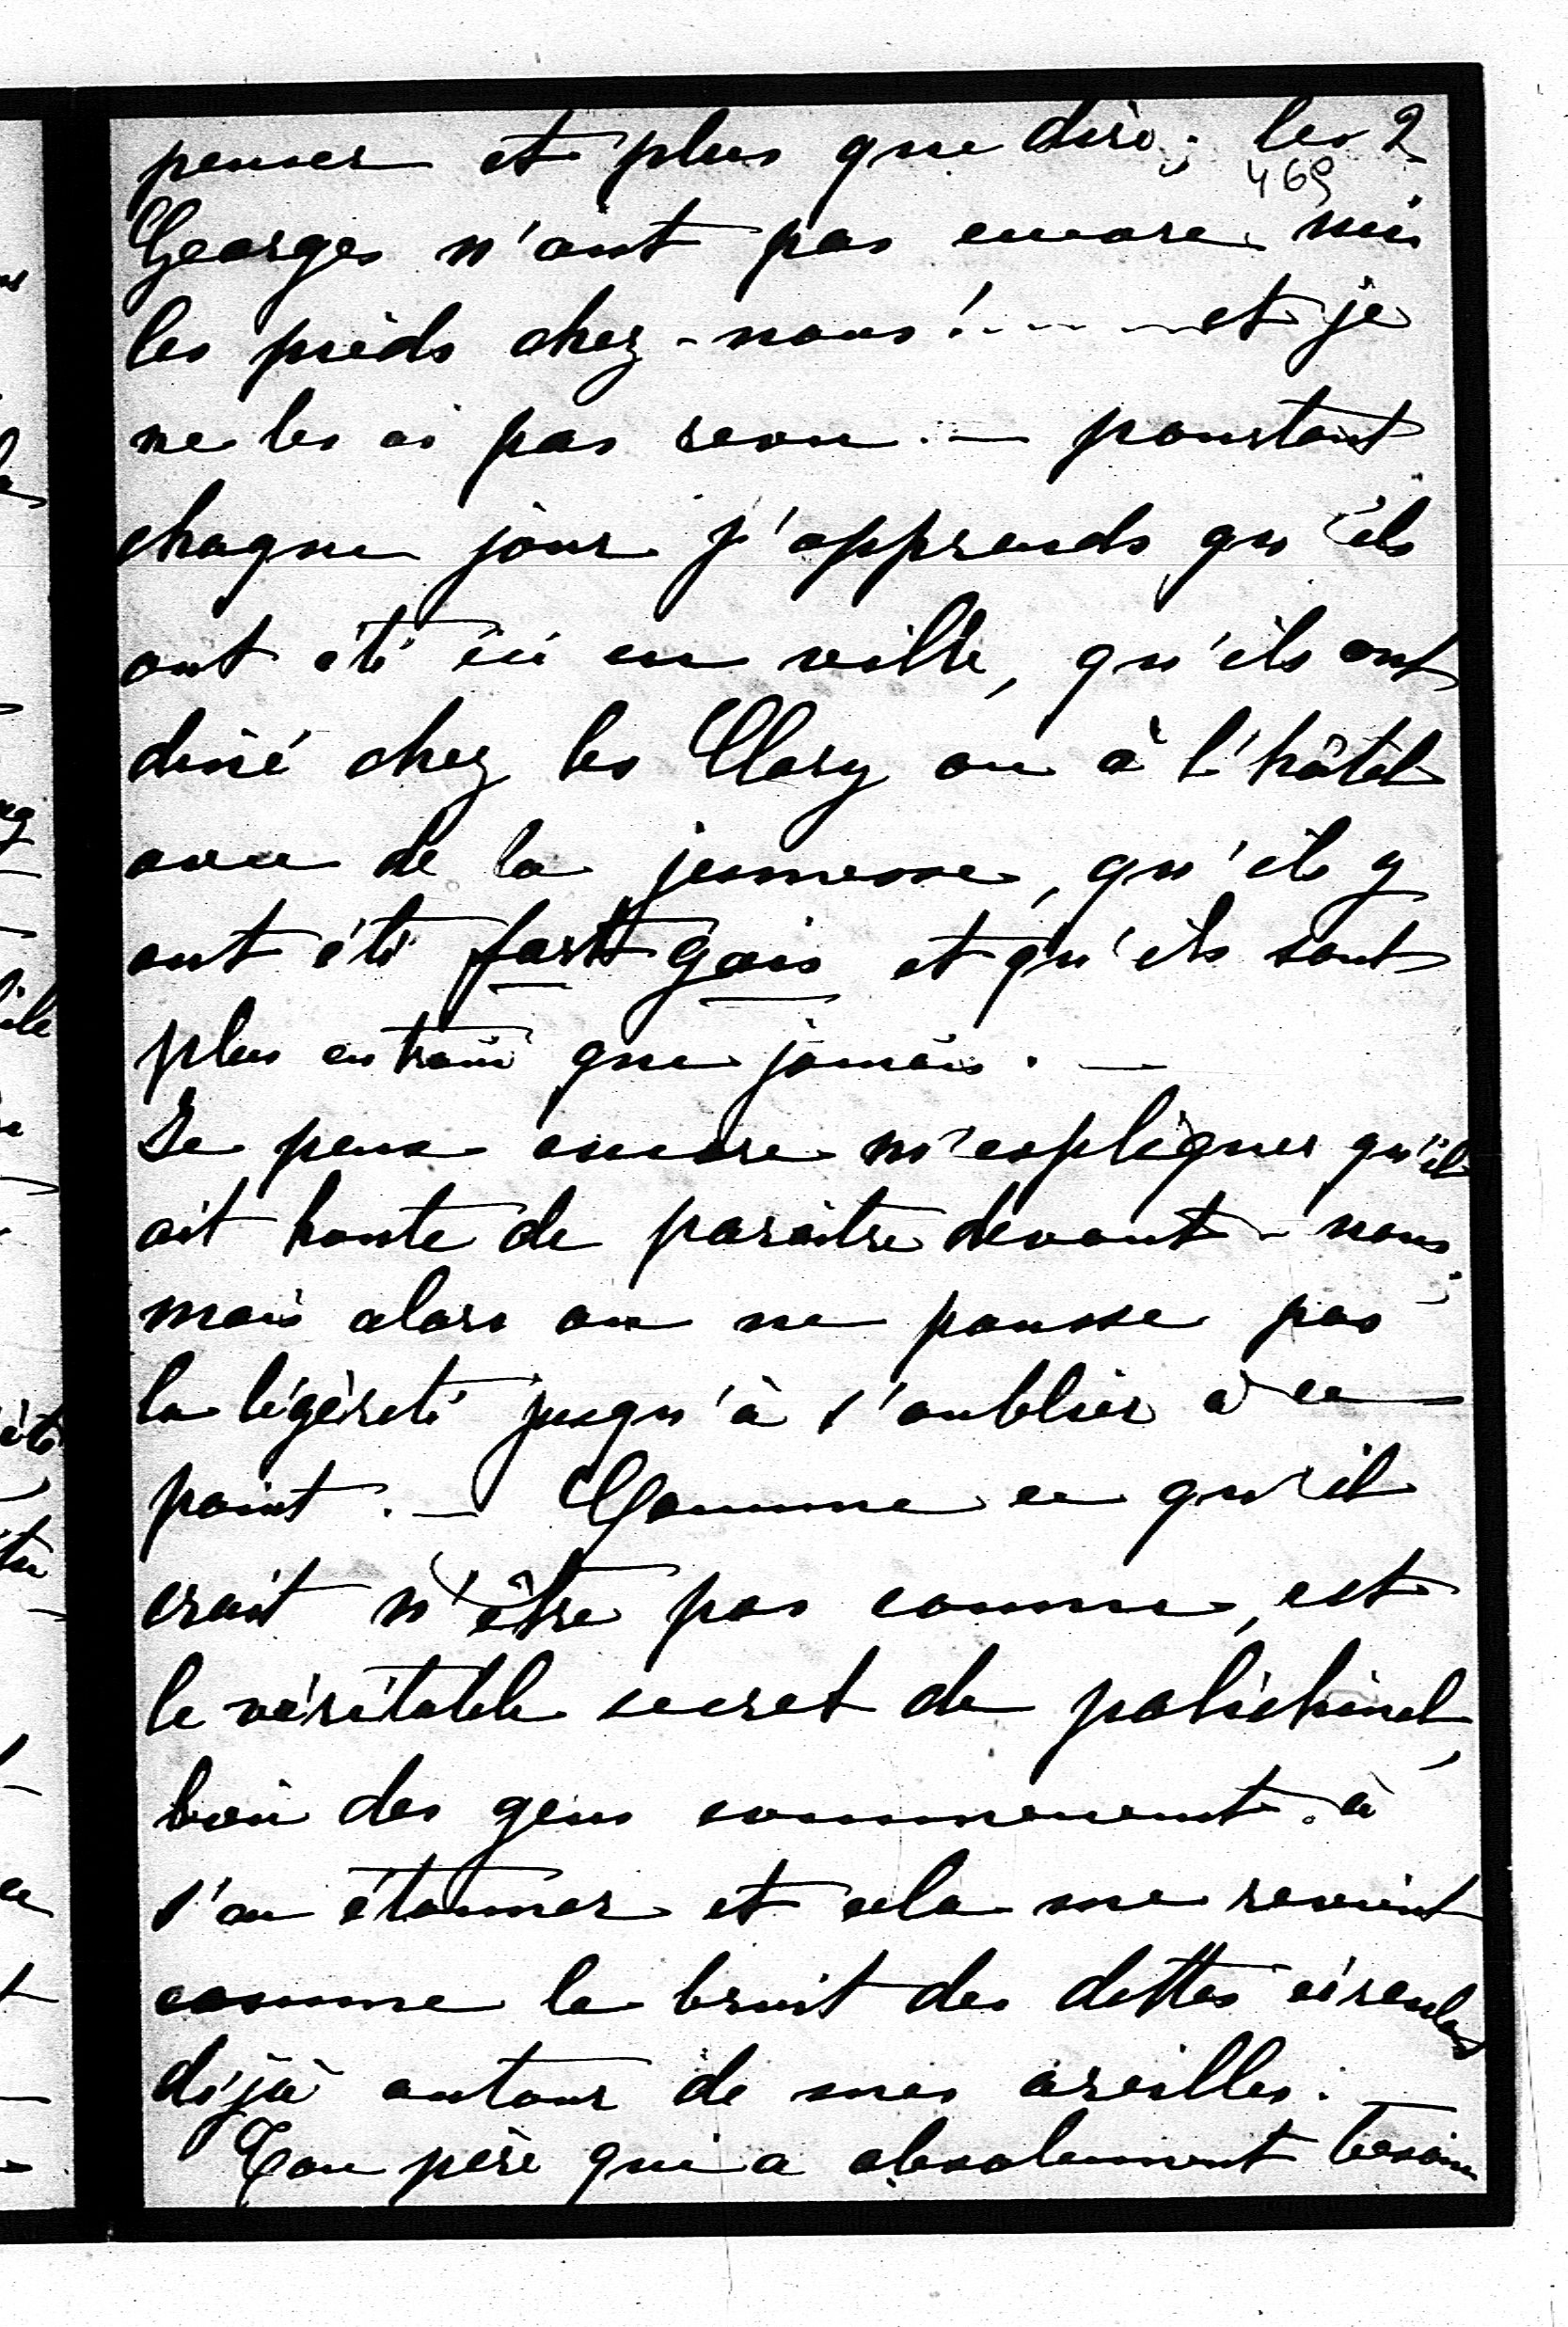 penser et plus que dire; les 2
469
Georges n'ont pas encore mis
les pieds chez-nous!.... et je
ne les ai pas revu. — pourtant
chaque jour j'apprends qu'ils
ont été ici en ville, qu'ils ont
diné chez les Clary ou à l'hôtel
avec de la jeunesse, qu'ils y
ont été fort gais et qu'ils sont
plus en train que jamais. —
Je peux encore m'expliquer qu'il
ait honte de paraître devant-nous;
mais alors on ne pousse pas
la légèreté jusqu'à s'oublier à ce
point. — Comme ce qu'il
croit n'être pas connu, est
le véritable secret de polichinel,
bien des gens commencent à
s'en étonner et cela me revient
comme le bruit des dettes circulant
déjà autour de mes oreilles. —
Ton père qui a absolument besoin